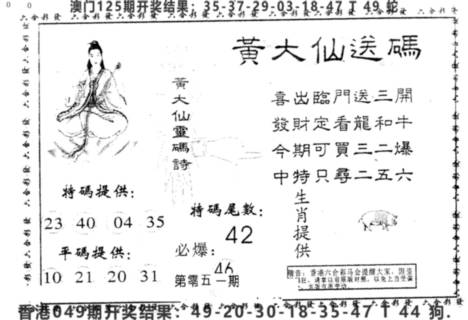 澳门125期开奖结果：35-37-29-03-18-47 T 49 蛇
黃大仙送碼
黃大仙靈碼詩
喜出臨門送三開
發財定看龍和牛
今期可買三二爆
中特只尋二五六
生肖提供
特碼提供：
23 40 04 35
特碼尾數：
42
平碼提供：
10 21 20 31
必爆：
46
第零五一期
香港049期开奖结果：49-20-30-18-35-47 T 44 狗.